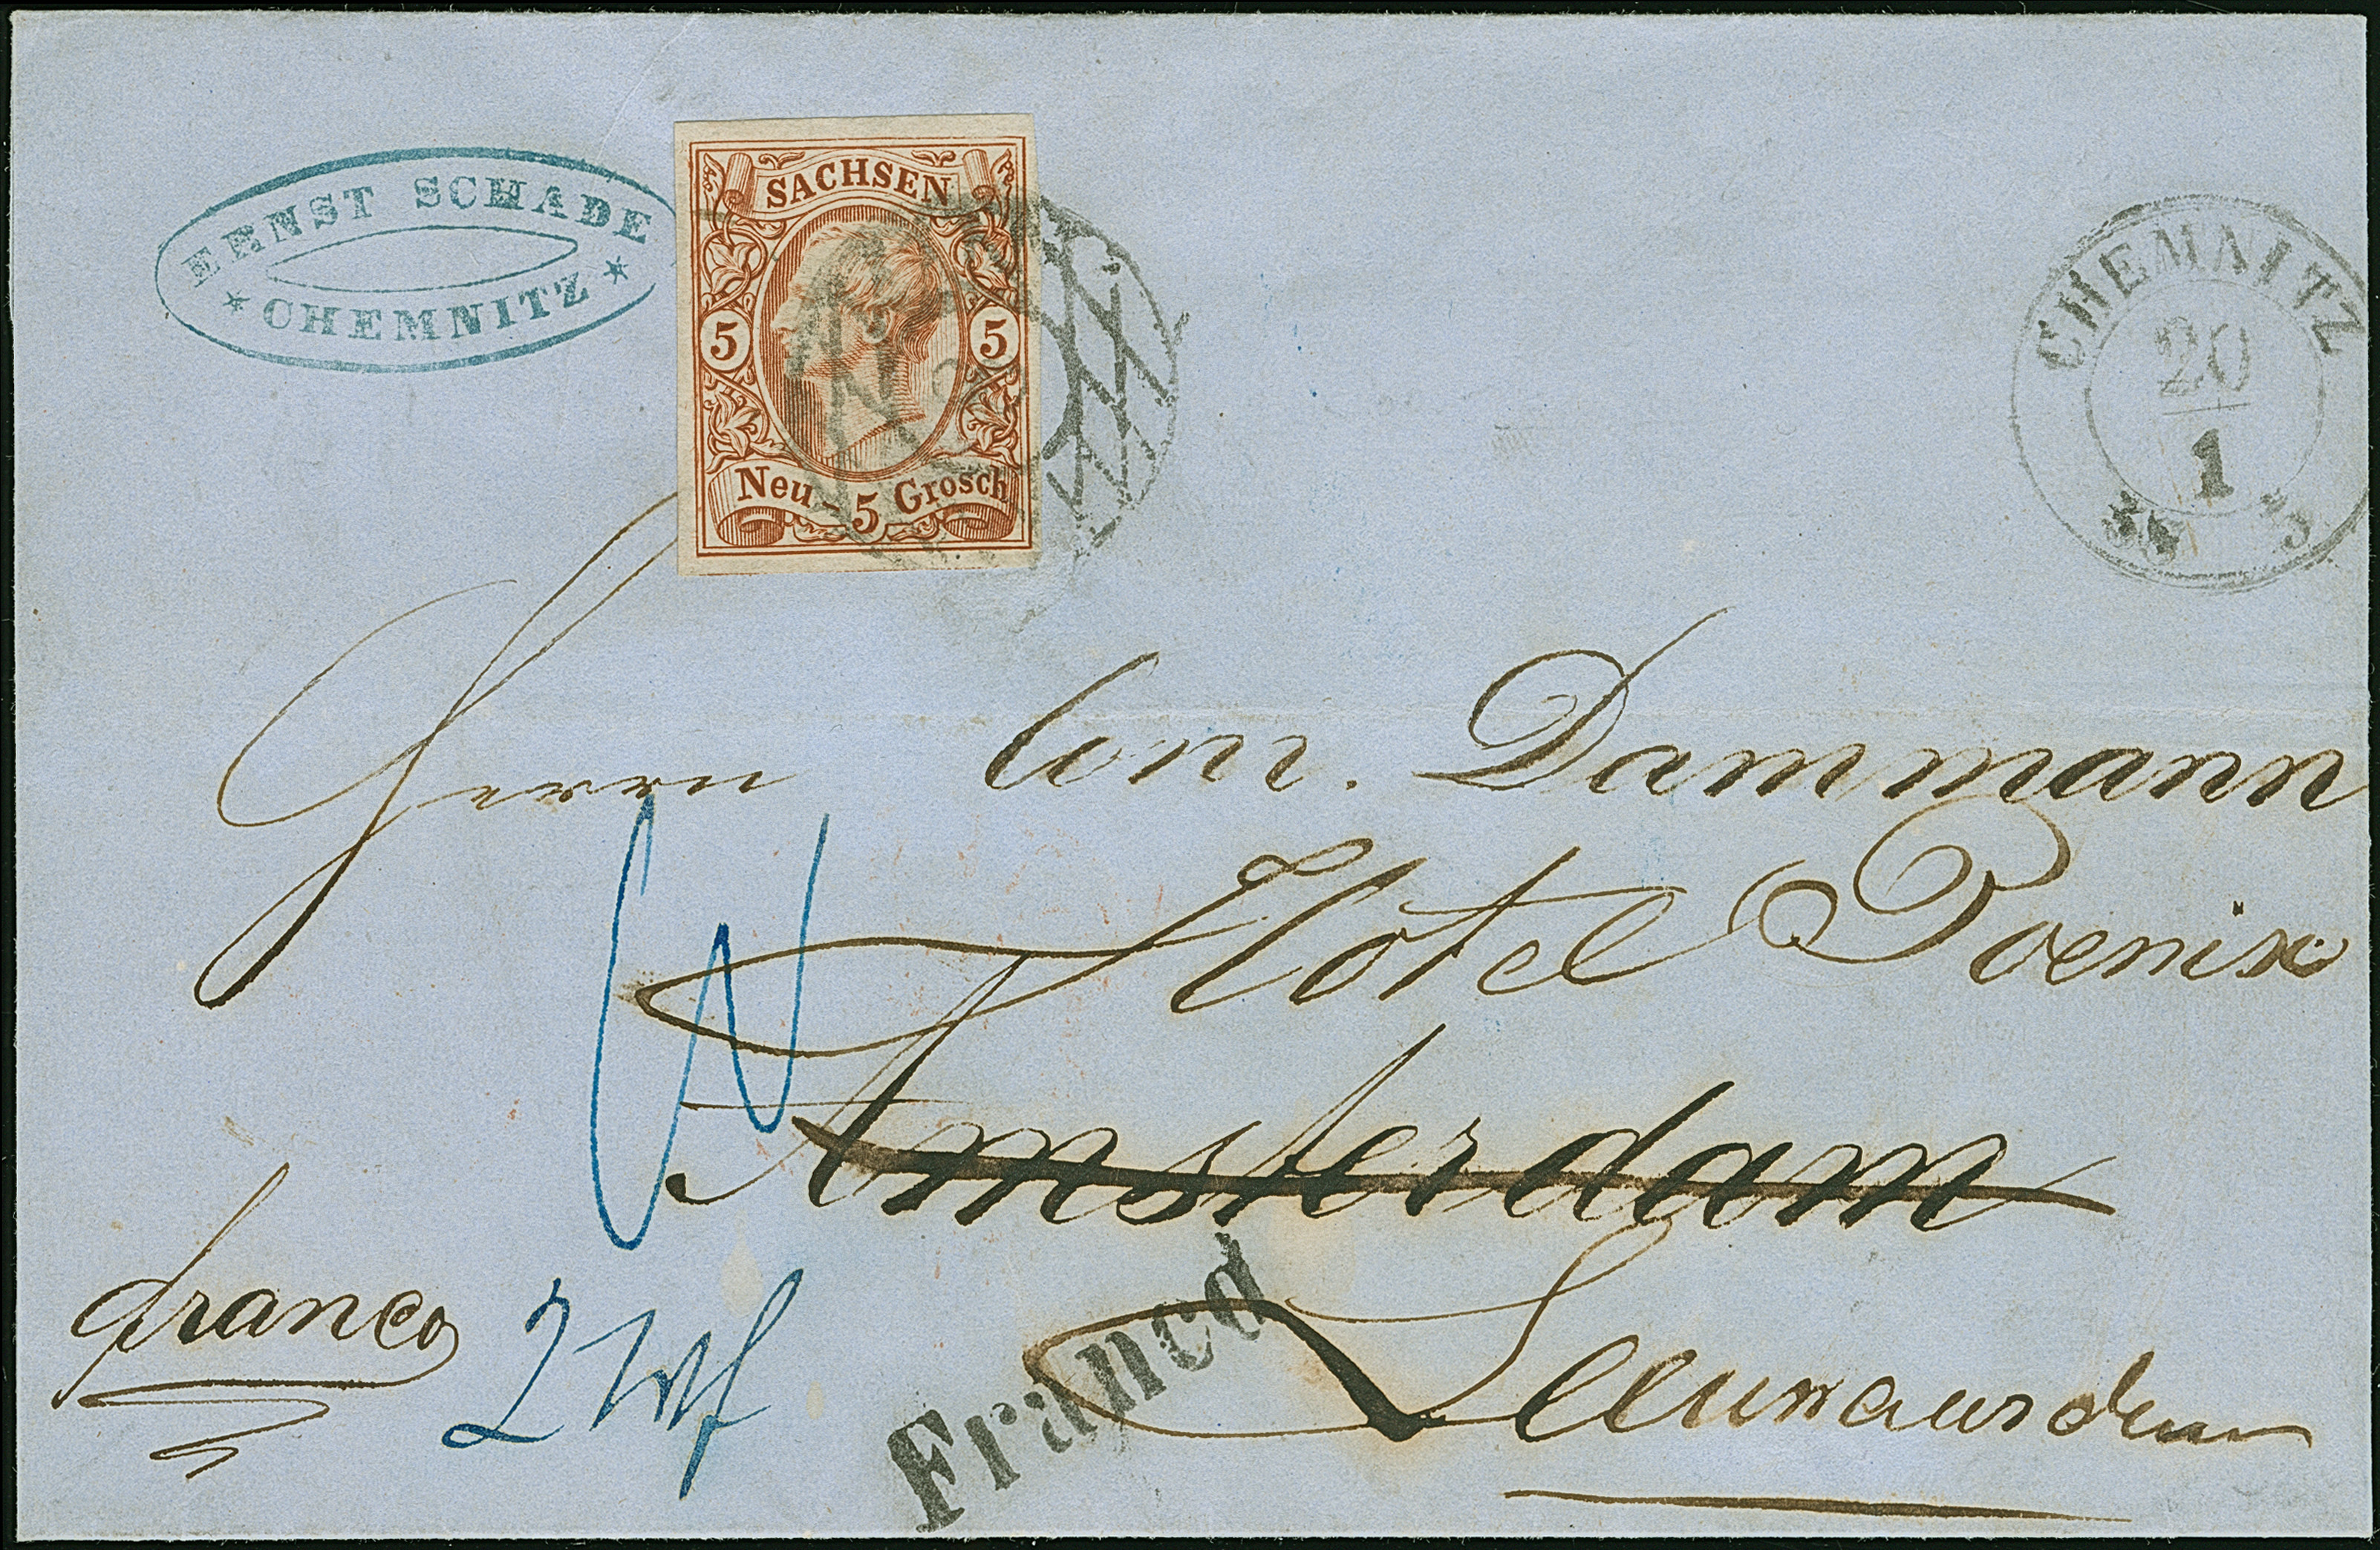 ERNST SCHADE
* CHEMNITZ *
SACHSEN
5 5
Neu-5 Grosch
CHEMNITZ
20
1
Herrn Com. Dammann
Hôtel Poenix
Amsterdam
Leeuwaarden
franco
2
Franco